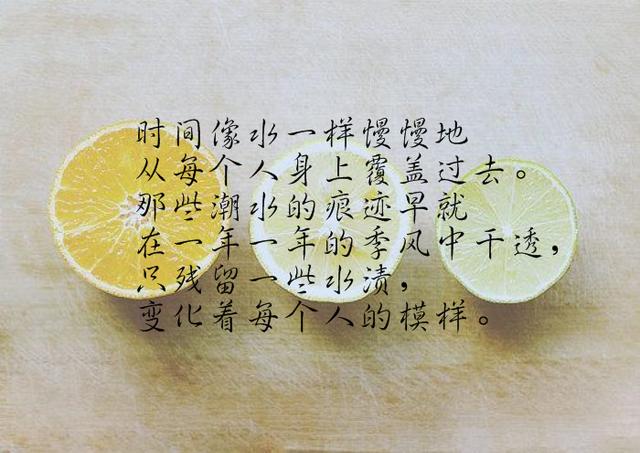 时间像水一样慢慢地
从每个人身上覆盖过去。
那些潮水的痕迹早就
在一年一年的季风中干透，
只残留一些水渍，
变化着每个人的模样。